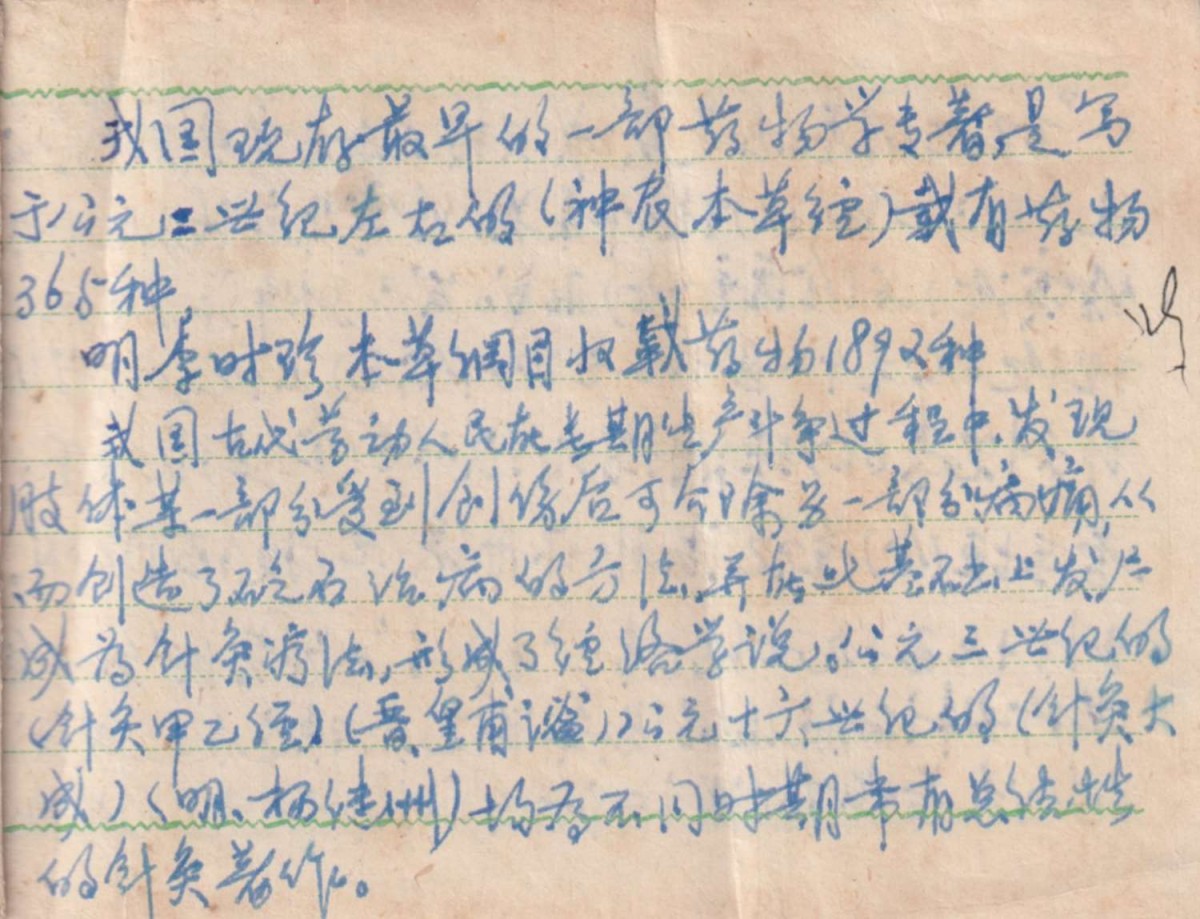 我国现存最早的一部药物学专著,是写
于公元二世纪左右的(神农本草经)载有药物
365种
明李时珍本草纲目收载药物1892种
我国古代劳动人民在长期生产斗争过程中、发现
肢体某一部分受到创伤后可令除另一部分病痛,从
而创造了砭石治病的方法,并在此基础上发展
成为针灸疗法,形成了经络学说。公元三世纪的
(针灸甲乙经)(晋、皇甫谧)公元十六世纪的(针灸大
成)(明、杨继洲)均为不同时期带有总结性
的针灸著作。